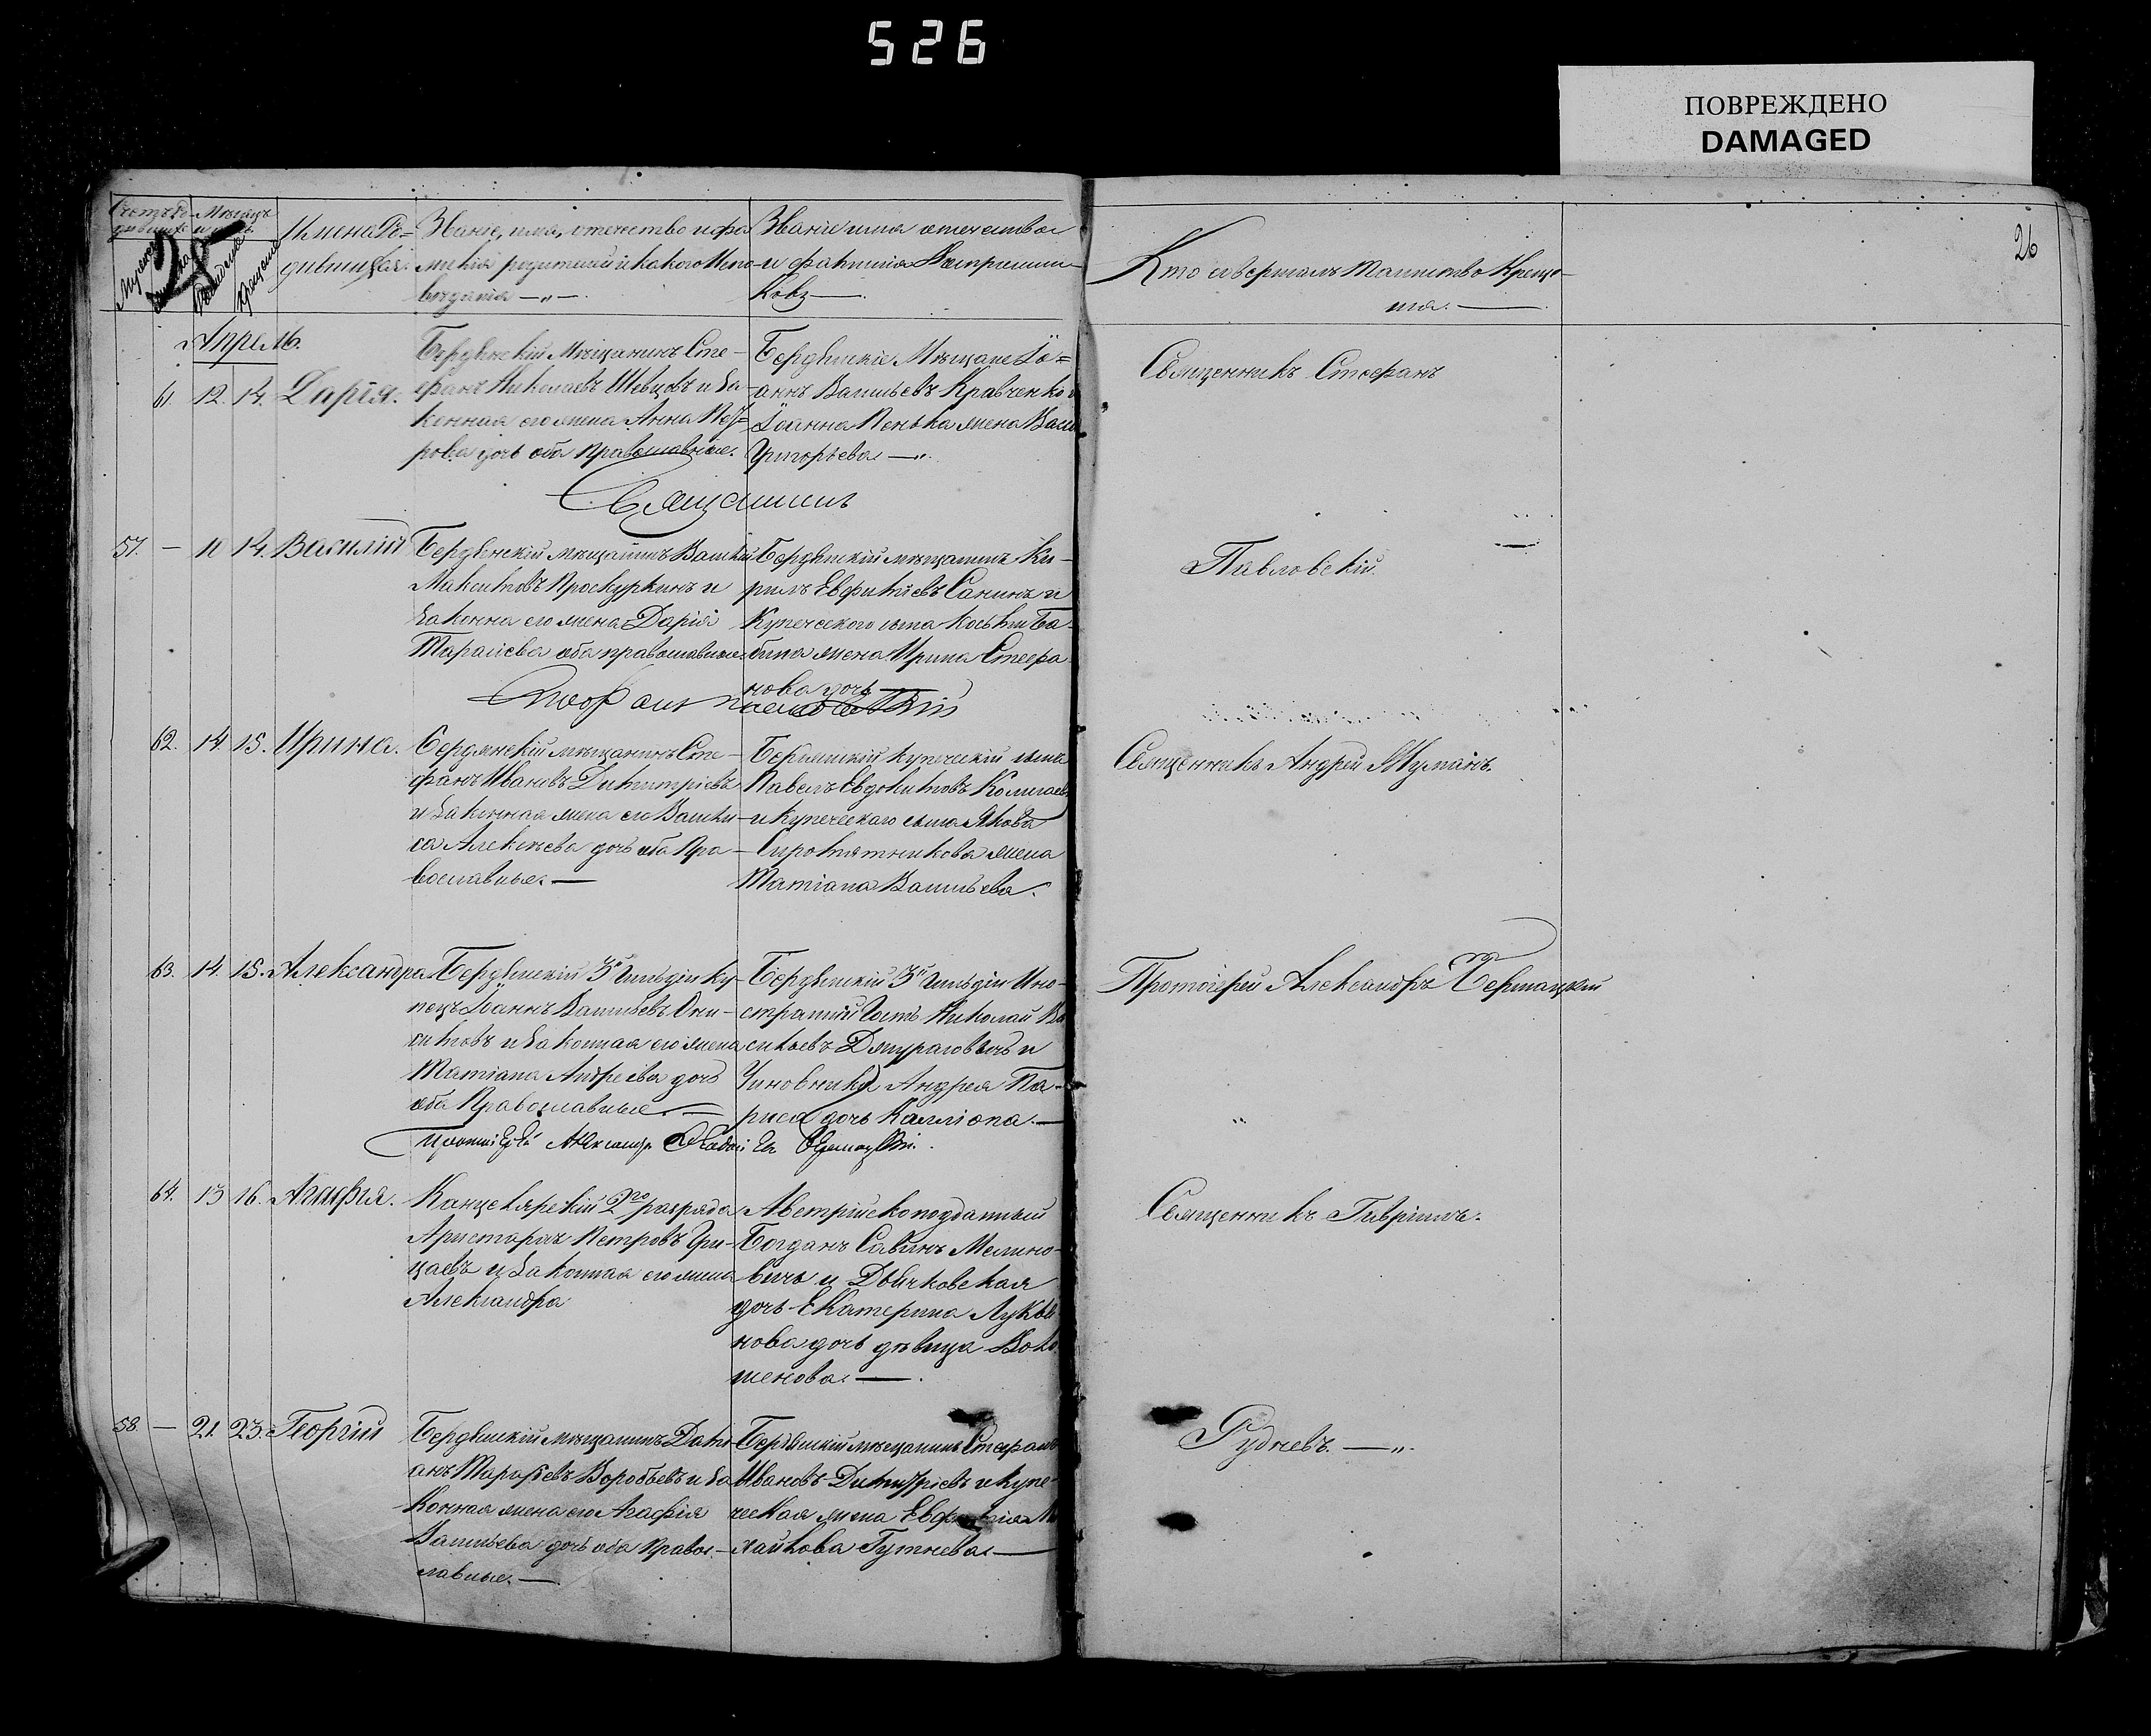 526
ПОВРЕЖДЕНО
DAMAGED
26
Имена Ро-
дившихся.
Званіе, имя, отчество и фа
милія родителей и какого Испо-
веданія —„—.
Званіе имя отечество
и фамилія Воспріемни-
ковъ —.
Кто совершалъ таинство Креще-
нія. —
Апрель.
61. 12. 14. Дарія.
Бердянскій Мѣщанинъ Сте-
фанъ Николаевъ Швецовъ и За-
конная его жена Анна Пет-
рова дочь оба православные.
Бердянскіе Мѣщане Іо-
аннъ Васильевъ Кравченко и
Іоанна Пенька жена
Григорьева —„.
Священникъ Стефанъ
Священникъ
57. — 10 14. Василій
Бердянскій мѣщанинъ Василій
Максимовъ Проскурнинъ и
Законна его жена Дарія
Тарасіева оба православные.
Бердянскій мѣщанинъ Ки-
рилъ Евфиміевъ Санинъ и
Купеческого сына Косьми Ба-
бина жена Ирина Стефа-
нова дочь
Павловскій.
Стефанъ Павловскій
62. 14. 15. Ирина.
Бердянскій мѣщанинъ Сте-
фанъ Ивановъ Димитріевъ
и Законная жена его Васили-
са Алексѣева дочь оба Пра-
вославные. —
Бердянскій купеческій сынъ
Павелъ Евдокимовъ
и купеческаго сына Якова
Сиромятникова жена
Татіана Васильева.
Священникъ Андрей
63. 14. 15. Александра
Бердянскій 3й гильдіи ку-
пецъ Іоаннъ Васильевъ Они-
симовъ и Законная его жена
Татіана Андреева дочь
оба Православные. —
Бердянскій 3й гильдіи Ино-
странный Гость Николай Ва
сильевъ и
Чиновника Андрея Па-
риса дочь Калліопа. —
Протоіерей Александръ
Протоіерей Александръ
64. 13 16. Агафія.
Канцелярскій 2го разряда
Аристархъ Петровъ Гри-
цаевъ и Законная его жена
Александра
Австрійскоподданный
Богданъ Савинъ Мелино-
вичъ и
дочь Екатерина Лукья
нова дочь дѣвица Воло
шенова. —.
Священникъ Гавріилъ.
58. — 21. 23. Георгій
Бердянскій мѣщанинъ Дамі-
анъ Тарасіевъ Воробьевъ и За
конная жена его Агафія
Васильева дочь оба Правос-
лавные. —.
Бердянскій мѣщанинъ Стефанъ
Ивановъ Димитріевъ и купе-
ческая жена
хайлова Гутнева. —
Рудневъ. —„.